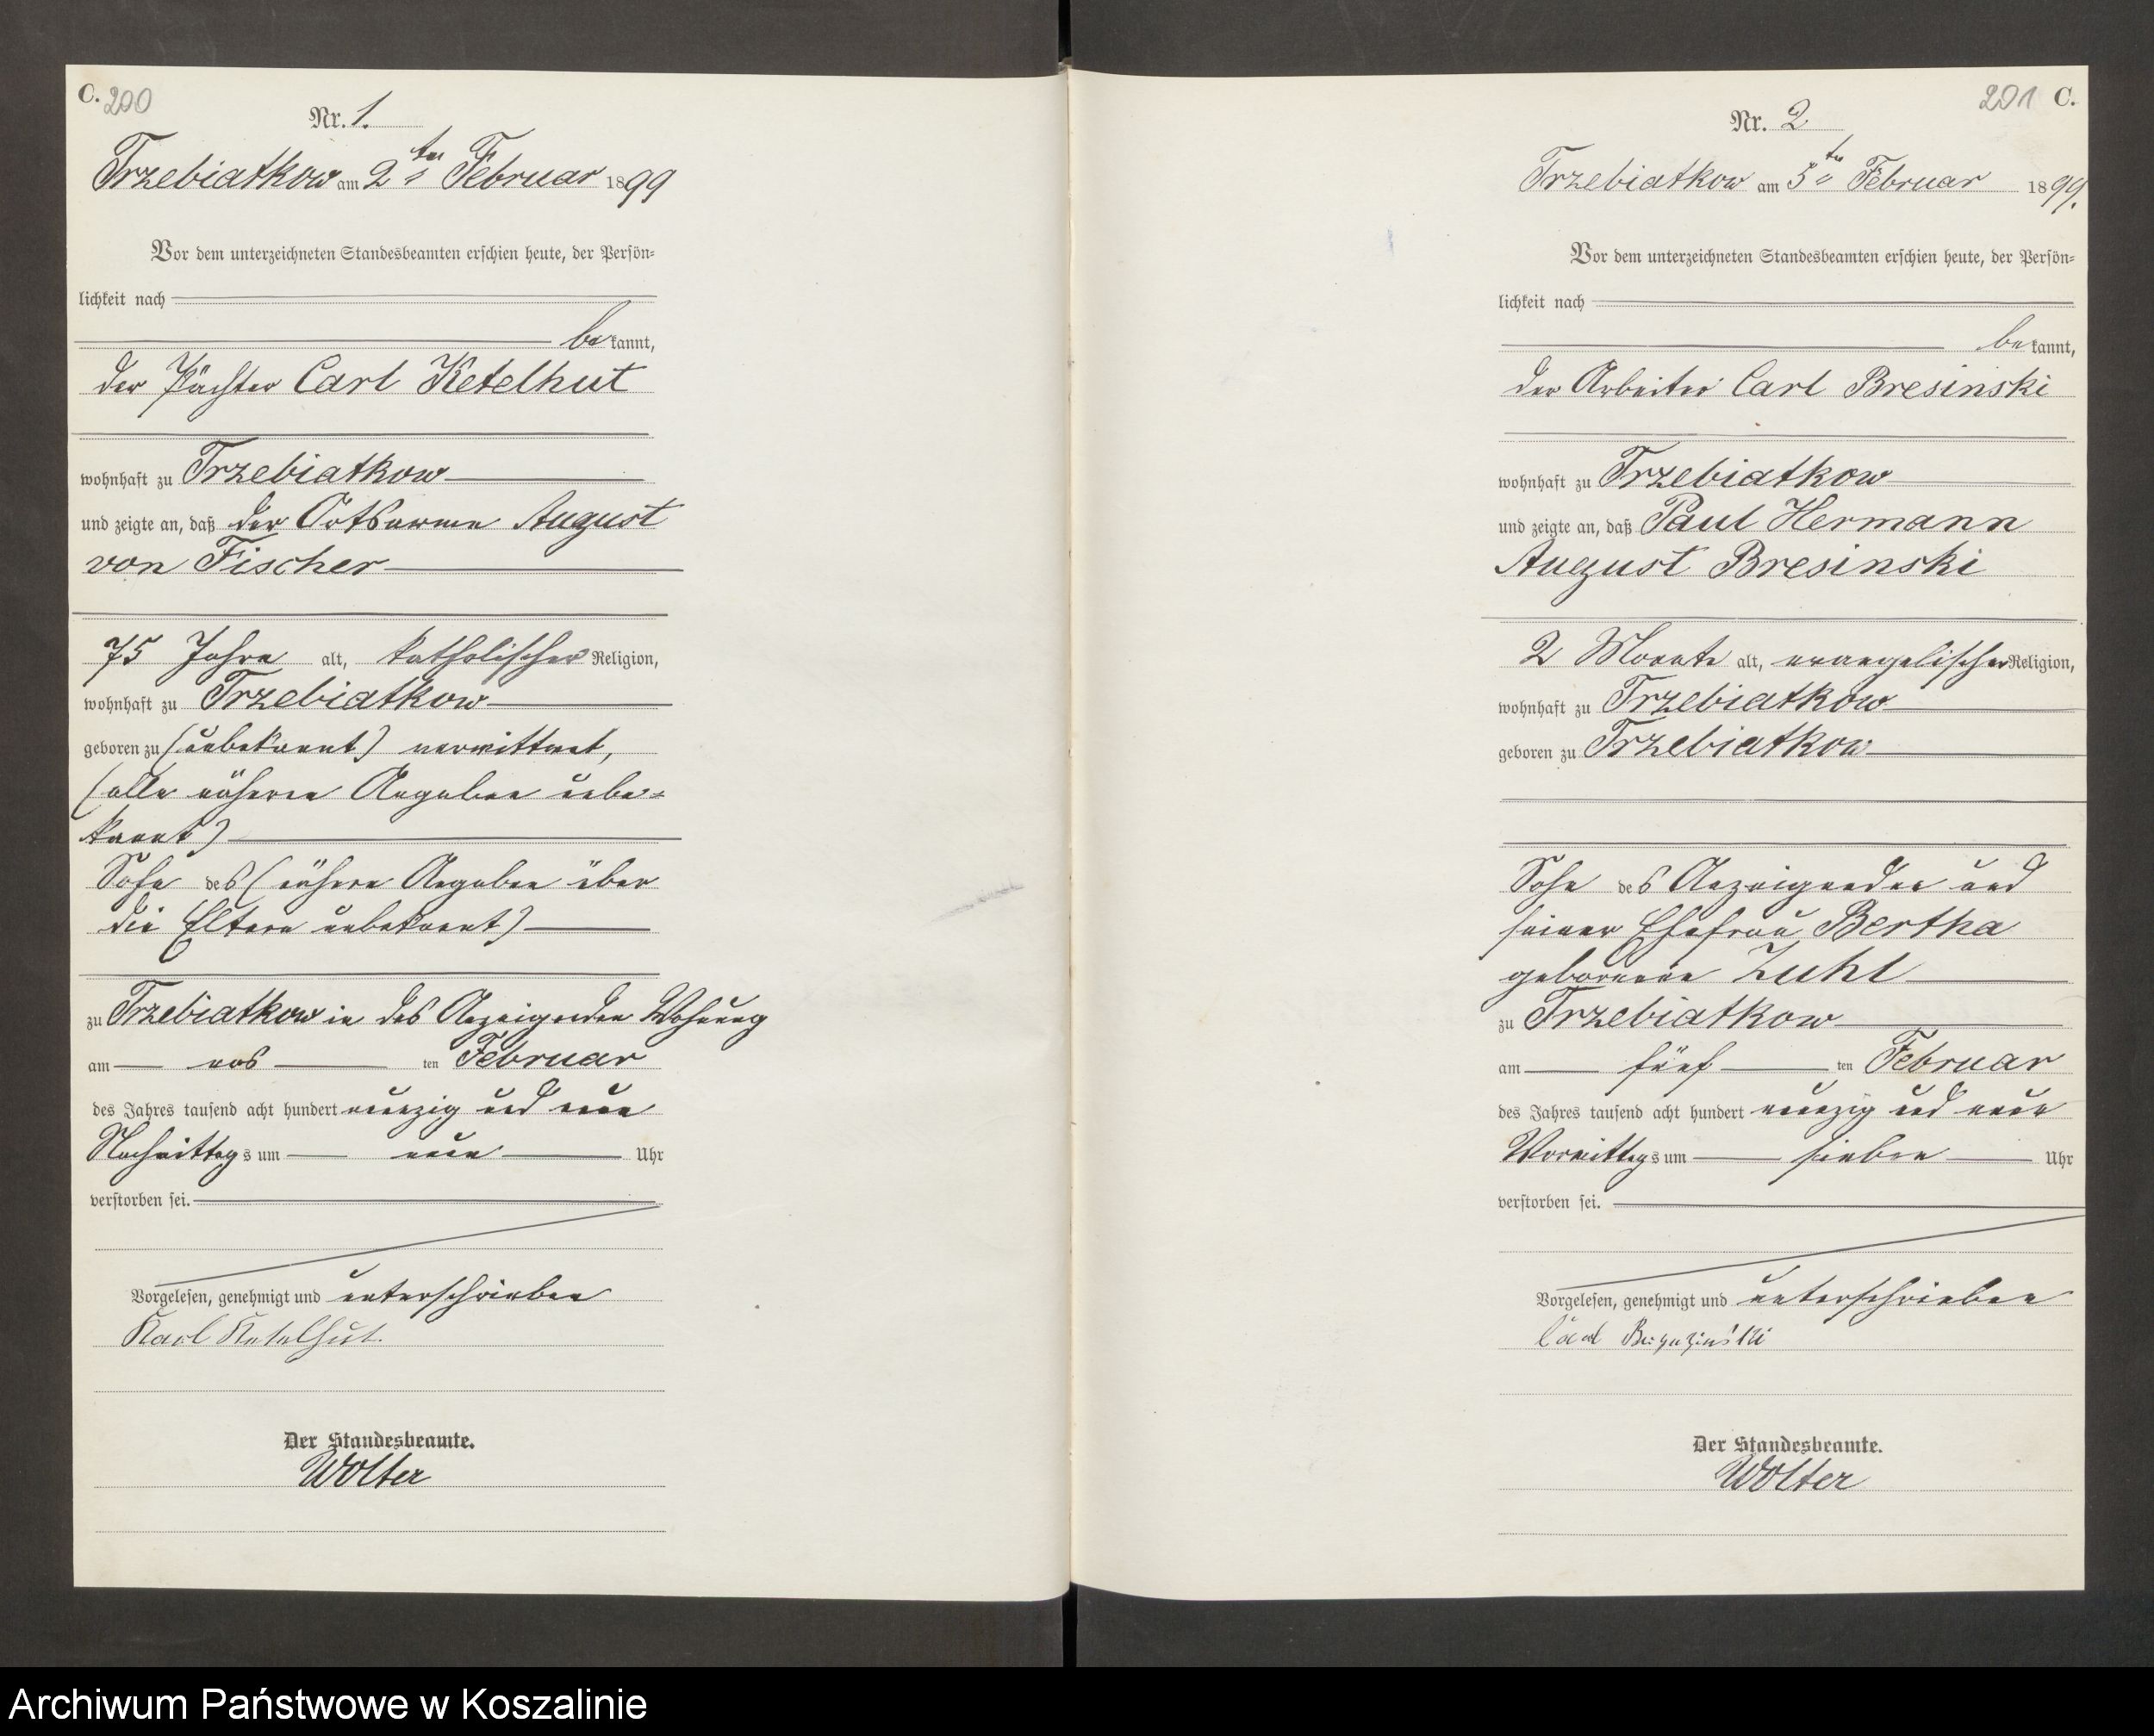 C. 200
Nr. 1.
Trzebiatkow am 2ten Februar 1899
Vor dem unterzeichneten Standesbeamten erschien heute, der Persön-
lichkeit nach
be kannt,
der Pächter Carl Ketelhut
wohnhaft zu Trzebiatkow
und zeigte an, daß der Ortsarme August
von Fischer
75 Jahre alt, katholischer Religion,
wohnhaft zu Trzebiatkow
geboren zu (unbekannt) verwittwet,
(alle näheren Angaben unbe-
kannt)
Sohn des (nähere Angaben über
die Eltern unbekannt)
zu Trzebiatkow in des Anzeigenden Wohnung
am ten Februar
des Jahres tausend acht hundert neunzig und neun
Nachmittags um neun Uhr
verstorben sei.
Vorgelesen, genehmigt und unterschrieben
Karl Ketelhut.
Der Standesbeamte.
Wolter
201 C.
Nr. 2
Trzebiatkow am 5ten Februar 1899.
Vor dem unterzeichneten Standesbeamten erschien heute, der Persön-
lichkeit nach
be kannt,
der Arbeiter Carl Bresinski
wohnhaft zu Trzebiatkow
und zeigte an, daß Paul Hermann
August Bresinski
2 Monate alt, evangelischer Religion,
wohnhaft zu Trzebiatkow
geboren zu Trzebiatkow
Sohn des Anzeigenden und
seiner Ehefrau Bertha
geborenen Zuhl
zu Trzebiatkow
am fünf ten Februar
des Jahres tausend acht hundert neunzig und neun
Vormittags um sieben Uhr
verstorben sei.
Vorgelesen, genehmigt und unterschrieben
Carl
Der Standesbeamte.
Wolter
Archiwum Państwowe w Koszalinie